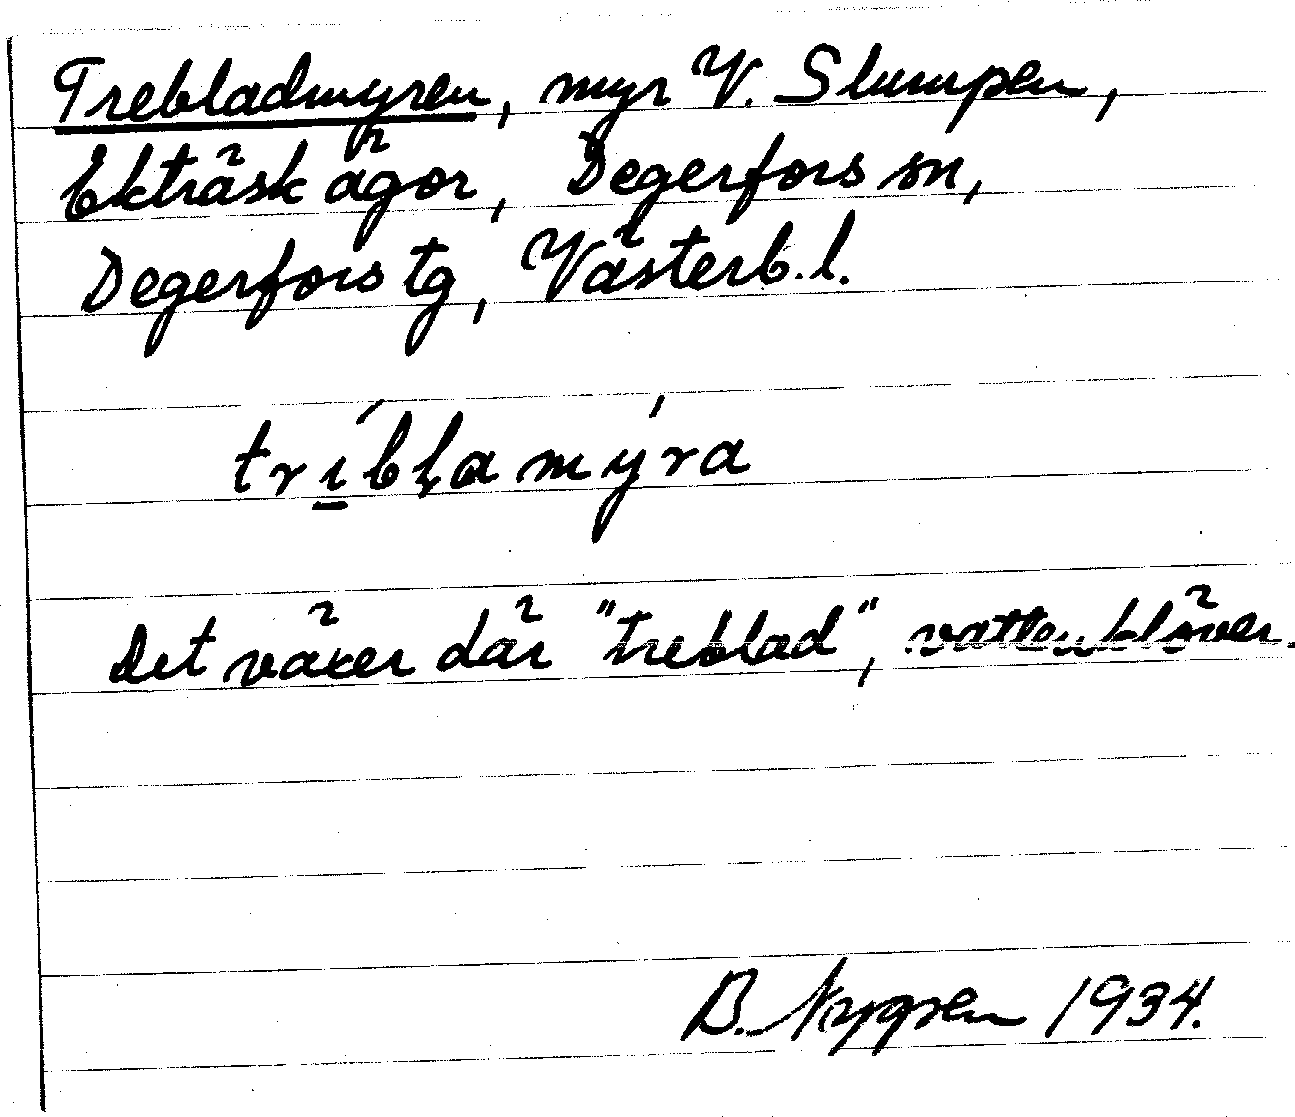 Trebladmyren, myr V. Slumpen,
Ekträsk ägor, Degerfors sn,
Degerfors tg, Västerb. l.
trı̲́bḷa mýra
Det växer där "treblad", vattenklöver.
B. Nygren 1934.